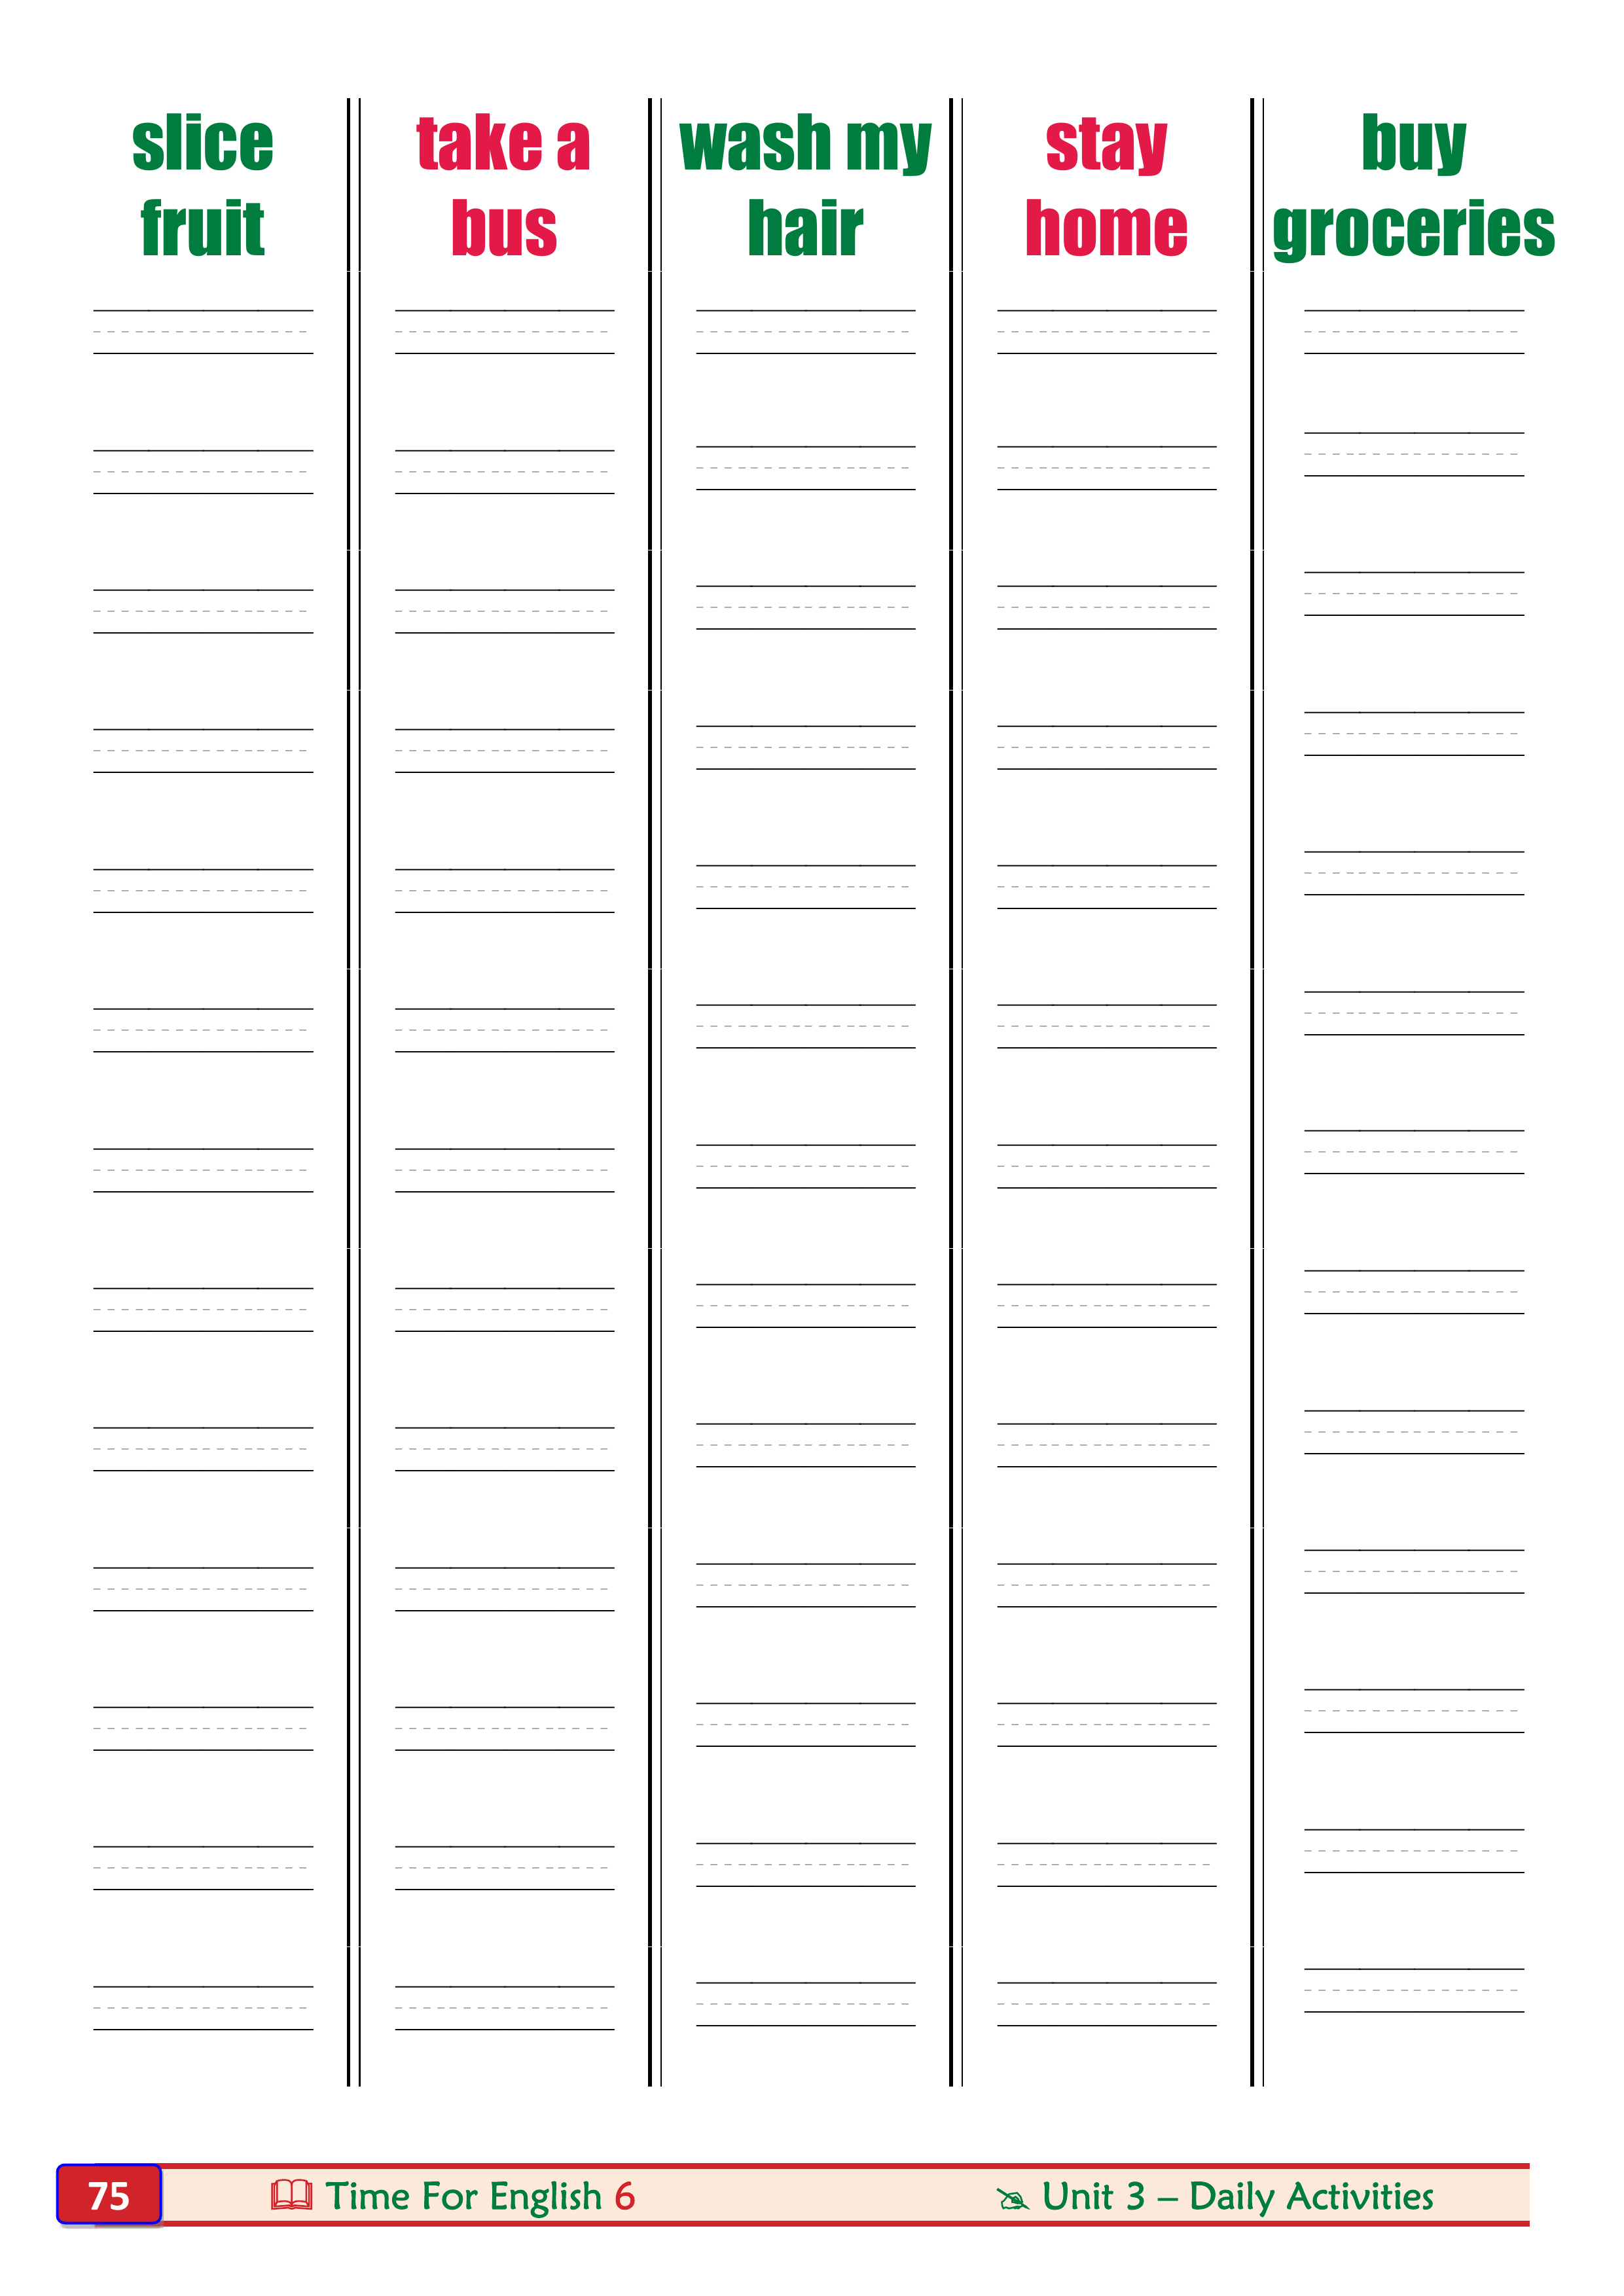 slice
fruit
take a
bus
wash my
hair
stay
home
buy
groceries
75
Time For English 6
Unit 3 – Daily Activities